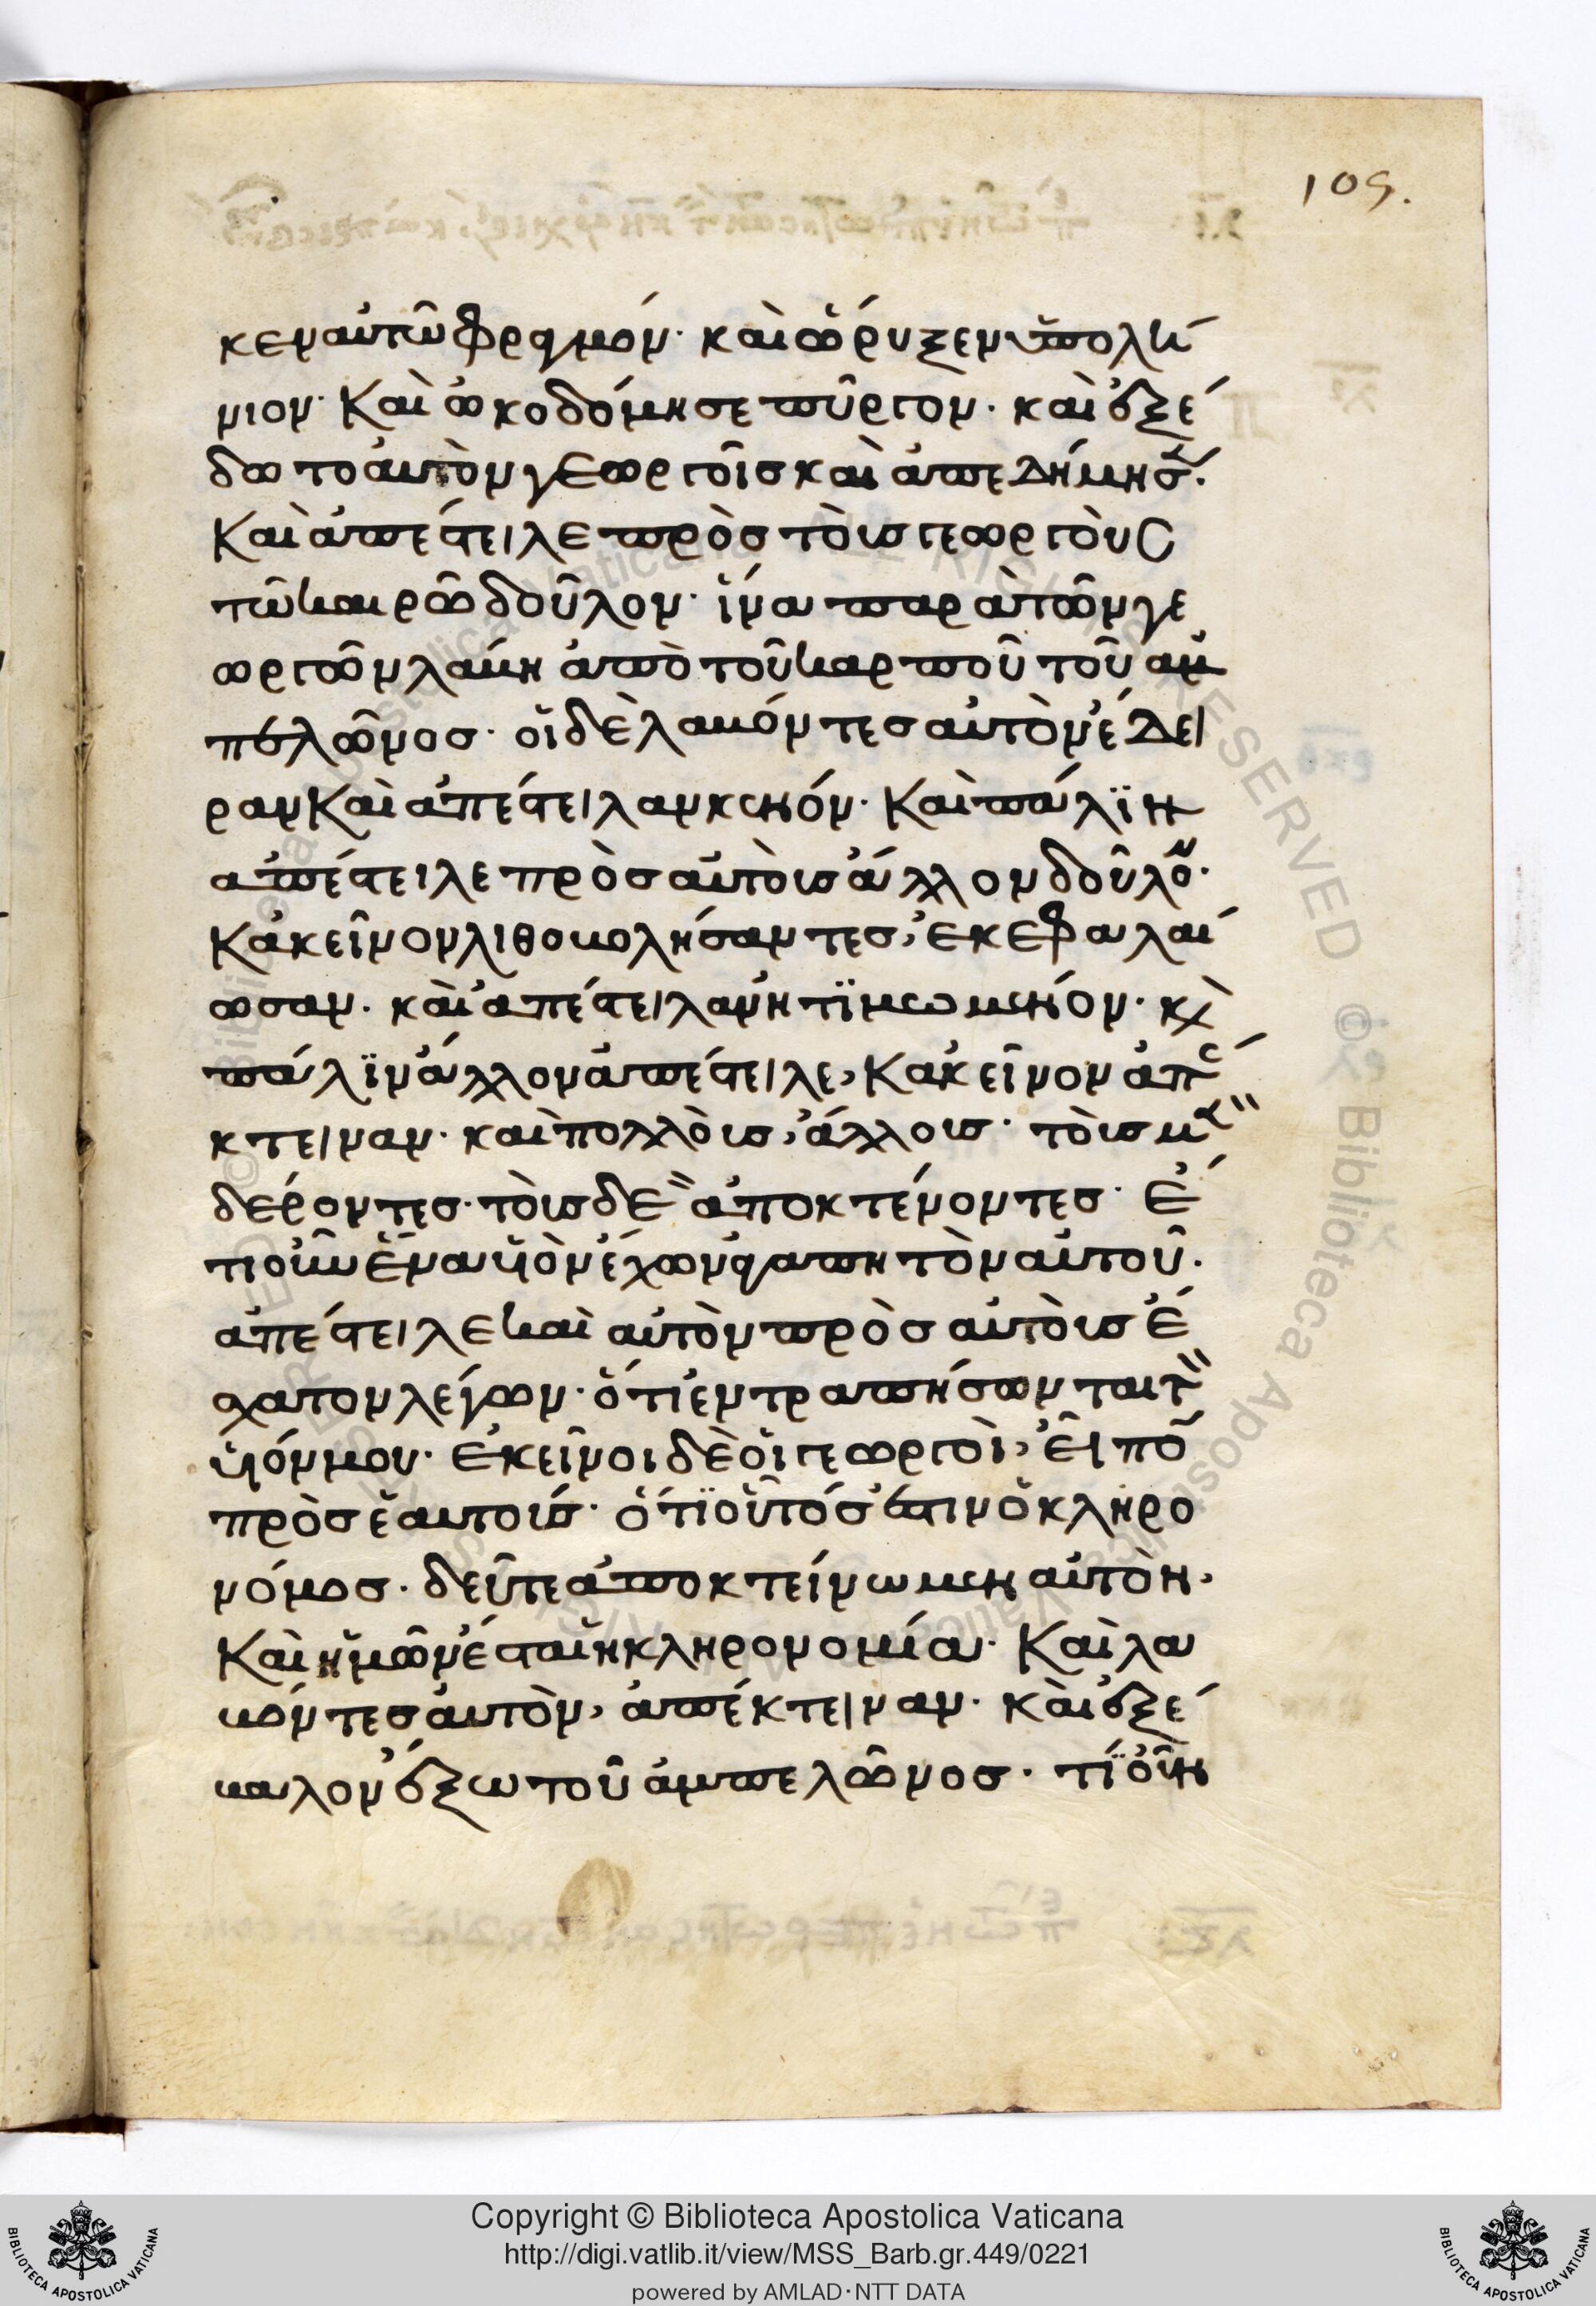 109.
κεν αὐτῶ φραγμόν· καὶ ὤρυξεν ὑπολή
νιον· Καὶ ὠκοδόμησε πῦργον· καὶ ἐξέ
δωτο αὐτὸν γεωργοῖς καὶ ἀπεδήμησ.
Καὶ ἀπέστειλε πρὸς τοὺς γεωργοὺς
τῶ καιρῶ δοῦλον· ἵνα παρα τῶν γε
ωργῶν λάβη ἀπὸ τοῦ καρποῦ τοῦ ἀμ
πελῶνος· οἱ δὲ λαβόντες αὐτὸν ἔδει
ραν Καὶ ἀπέστειλαν κενόν· Καὶ πάλϊν
ἀπέστειλε πρὸς αὐτοὺς ἄλλον δοῦλο.
Κἀκεῖνον λιθοβολήσαντες, ἐκεφαλαί
ωσαν. καὶ ἀπέστειλαν ἠτϊμωμένον· κ
πάλϊν ἄλλον ἀπέστειλε, Κακεῖνον ἀπέ
κτειναν· καὶ πολλοὺς, ἄλλους· τοὺς μὲν
δέροντες· τοὺς δὲ ἀποκτένοντες· ἔ
τι οὖν ἕνα υἱὸν ἔχων ἀγαπητὸν αὐτοῦ.
ἀπέστειλε καὶ αὐτὸν πρὸς αὐτοὺς ἔ
σχατον λέγων· ὅτι ἐντραπήσωνται τ
υἱόν μου· ἐκεῖνοι δὲ οἱ γεωργοὶ, εἶπο
πρὸς ἑαυτούς· ὅτϊ οὗτός ἐστιν ὁ κληρο
νόμος· δεῦτε ἀποκτείνωμεν αὐτὸν,
Καὶ ἡμῶν ἔσται ἡ κληρονομία· Καὶ λα
βόντες αὐτὸν, ἀπέκτειναν· καὶ ἐξέ
βαλον ἔξω τοῦ ἀμπελῶνος· τί οὖν
Copyright © Biblioteca Apostolica Vaticana
http://digi.vatlib.it/view/MSS_Barb.gr.449/0221
powered by AMLAD·NTT DATA
BIBLIOTECA APOSTOLICA VATICANA
BIBLIOTECA APOSTOLICA VATICANA